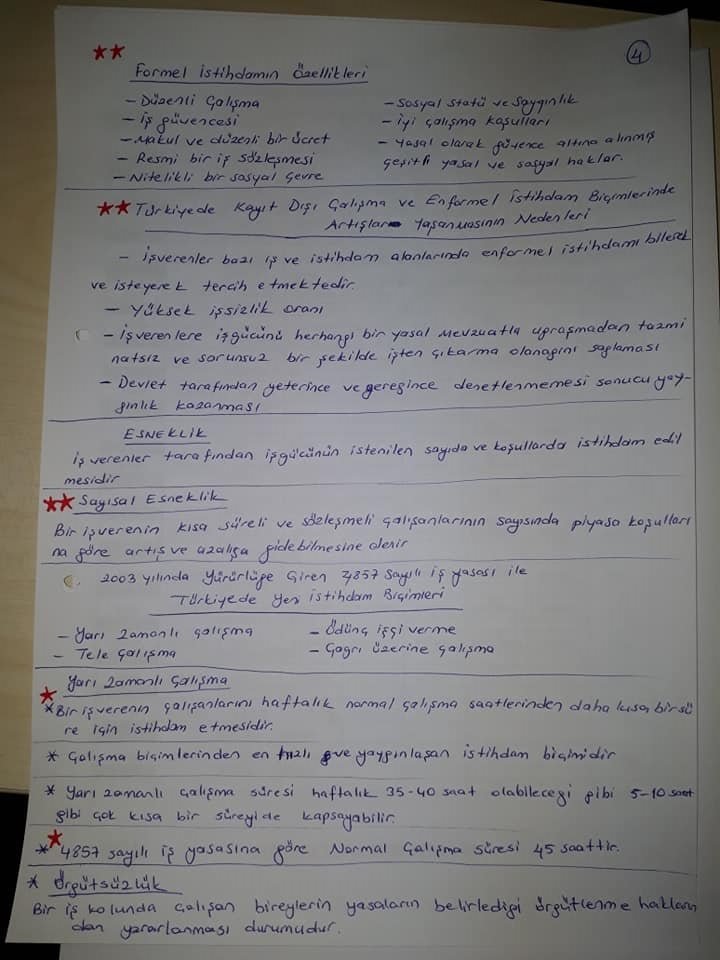 4
Formel İstihdamın Özellikleri
- Düzenli Çalışma
- İş güvencesi
- Makul ve düzenli bir ücret
- Resmi bir iş sözleşmesi
- Nitelikli bir sosyal çevre
- Sosyal statü ve saygınlık
- İyi çalışma koşulları
- Yasal olarak güvence altına alınmış
çeşitli yasal ve sosyal haklar.
Türkiyede Kayıt Dışı Çalışma ve Enformel İstihdam Biçimlerinde
Artışlar Yaşanmasının Nedenleri
- İşverenler bazı iş ve istihdam alanlarında enformel istihdamı bilerek
ve isteyerek tercih etmektedir.
- Yüksek işsizlik oranı
- İşverenlere işgücünü herhangi bir yasal mevzuatla uğraşmadan tazmi
natsız ve sorunsuz bir şekilde işten çıkarma olanağını sağlaması
- Devlet tarafından yeterince ve gereğince denetlenmemesi sonucu yay-
gınlık kazanması
ESNEKLİK
İş verenler tarafından işgücünün istenilen sayıda ve koşullarda istihdam edil
mesidir
Sayısal Esneklik
Bir işverenin kısa süreli ve sözleşmeli çalışanlarının sayısında piyasa koşulları
na göre artış ve azalışa gidebilmesine denir
2003 yılında Yürürlüğe Giren 4857 Sayılı iş yasası ile
Türkiyede Yeni İstihdam Biçimleri
- Yarı zamanlı çalışma
- Tele Çalışma
- Ödünç işçi verme
- Çağrı üzerine çalışma
Yarı Zamanlı Çalışma
* Bir işverenin çalışanlarını haftalık normal çalışma saatlerinden daha kısa bir sü
re için istihdam etmesidir.
* Çalışma biçimlerinden en hızlı ve yaygınlaşan istihdam biçimidir
* Yarı zamanlı çalışma süresi haftalık 35-40 saat olabileceği gibi 5-10 saat
gibi çok kısa bir süreyide kapsayabilir.
* 4857 sayılı iş yasasına göre Normal Çalışma süresi 45 saattir.
* Örgütsüzlük
Bir iş kolunda çalışan bireylerin yasaların belirlediği örgütlenme hakların
dan yararlanması durumudur.